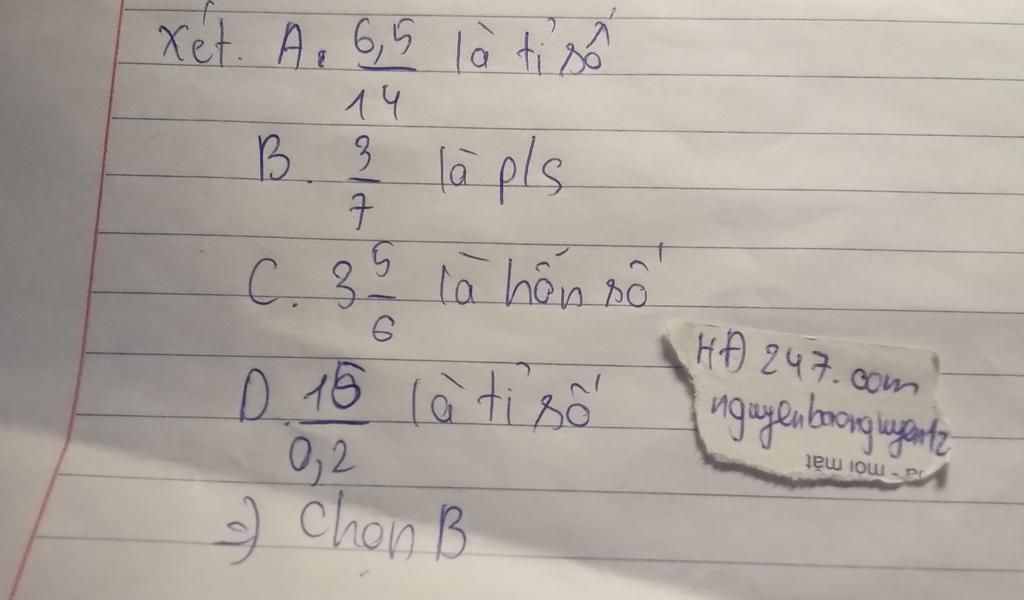 Xét. A. 6,5/14 là tỉ số
B. 3/7 là p/s
C. 3 5/6 là hỗn số
D. 15/0,2 là tỉ số
=) Chọn B
HĐ 247.com
nguyenbaonguyentz